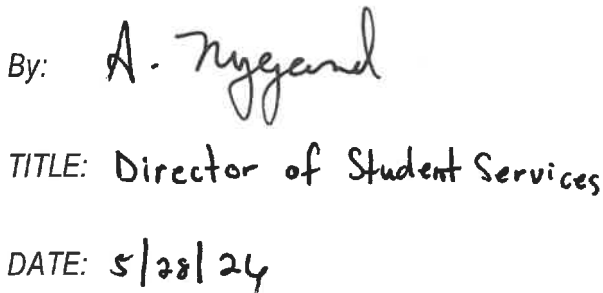 By: A. Nygaard
TITLE: Director of Student Services
DATE: 5/28/24